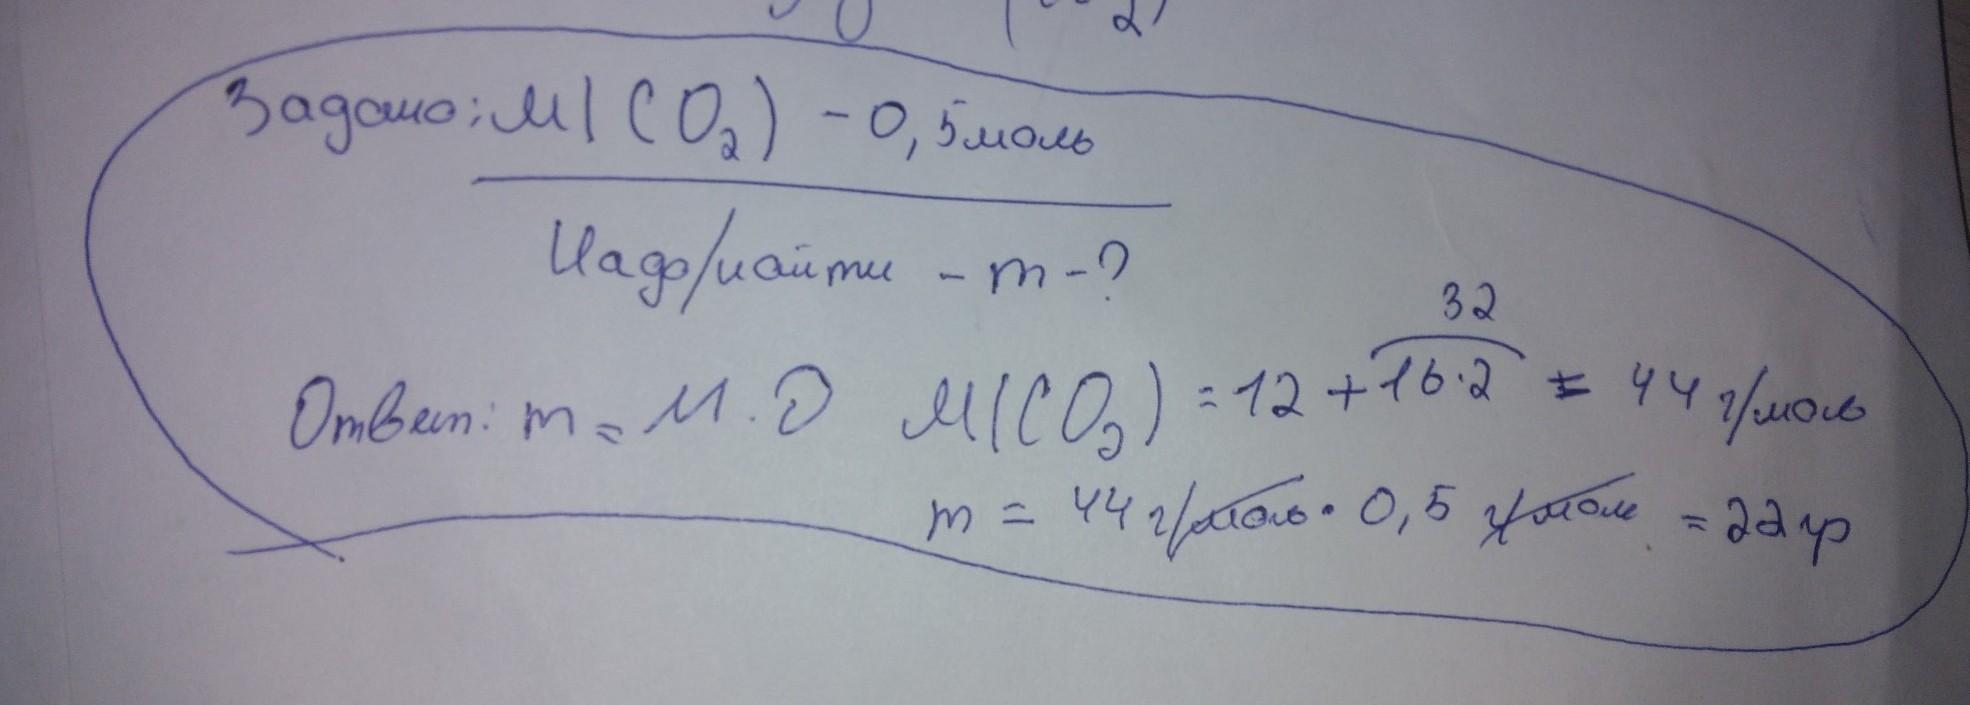 Задано: M(CO2) - 0,5 моль
Надо/найти - m - ?
32
Ответ: m = M · D M(CO2) = 12 + 16·2 = 44 г/моль
m = 44 г/моль · 0,5 г/моль = 22 гр